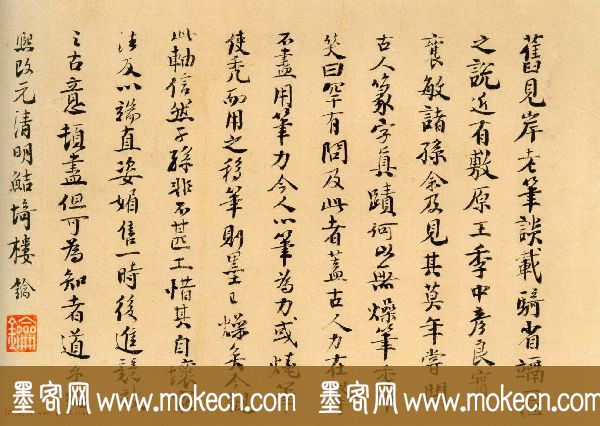 舊見岸老筆談載騎省
之說近有敷原王季中彥良實
襄敏諸孫余及見其莫年嘗問
古人篆字真蹟何以無燥筆季中
笑曰罕有問及此者蓋古人力在
不盡用筆力今人以筆為力或燒筆
使禿而用之移筆則墨已燥矣今觀
此軸信然子孫非不甚工惜其自壞
法反以端直姿媚售一時後進競
之古意頓盡但可為知者道
熙改元清明鮚埼樓鑰
墨客网www.mokecn.com
墨客网www.mokecn.com